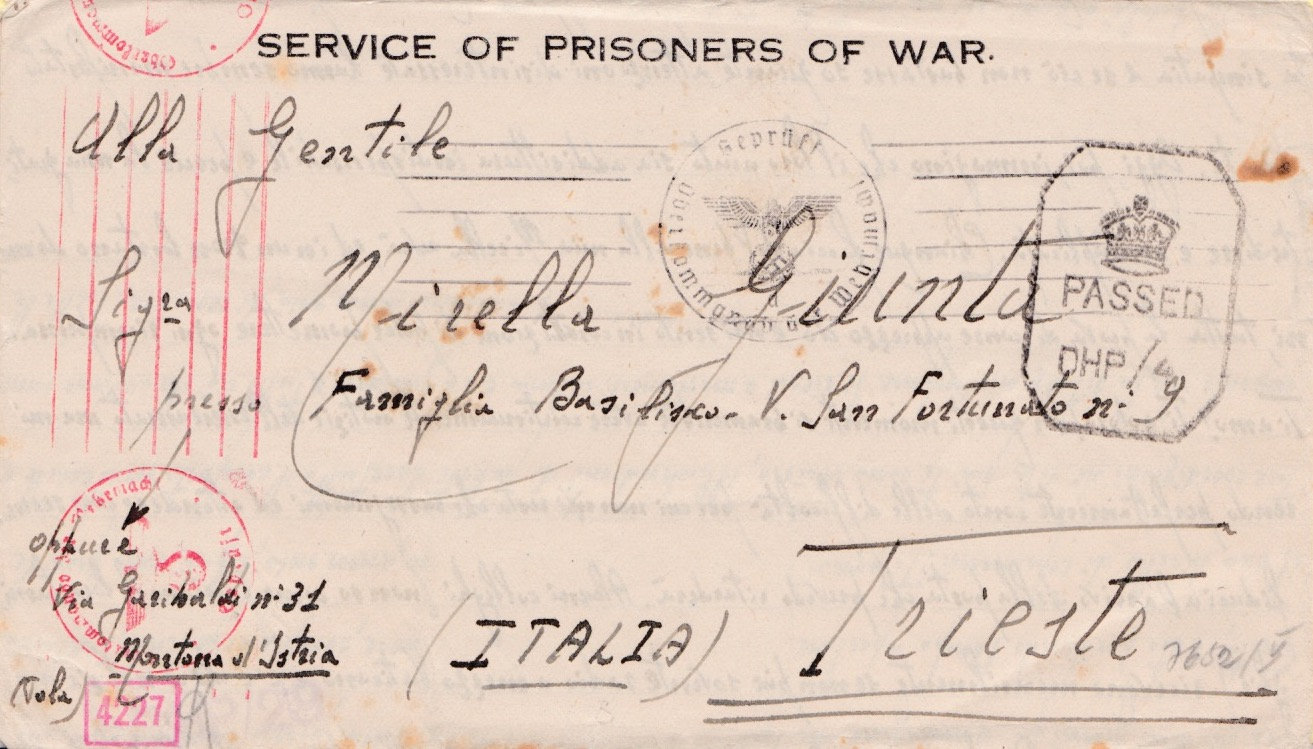 SERVICE OF PRISONERS OF WAR.
Alla Gentile
Sig.ra Mirella Giunta
presso Famiglia Basilisco - V. San Fortunato n° 9
Trieste
(ITALIA)
oppure
Via Garibaldi n° 31
Montona d'Istria
(Pola)
4227
Geprüft
Oberkommando der Wehrmacht
PASSED
DHP/4
7652/